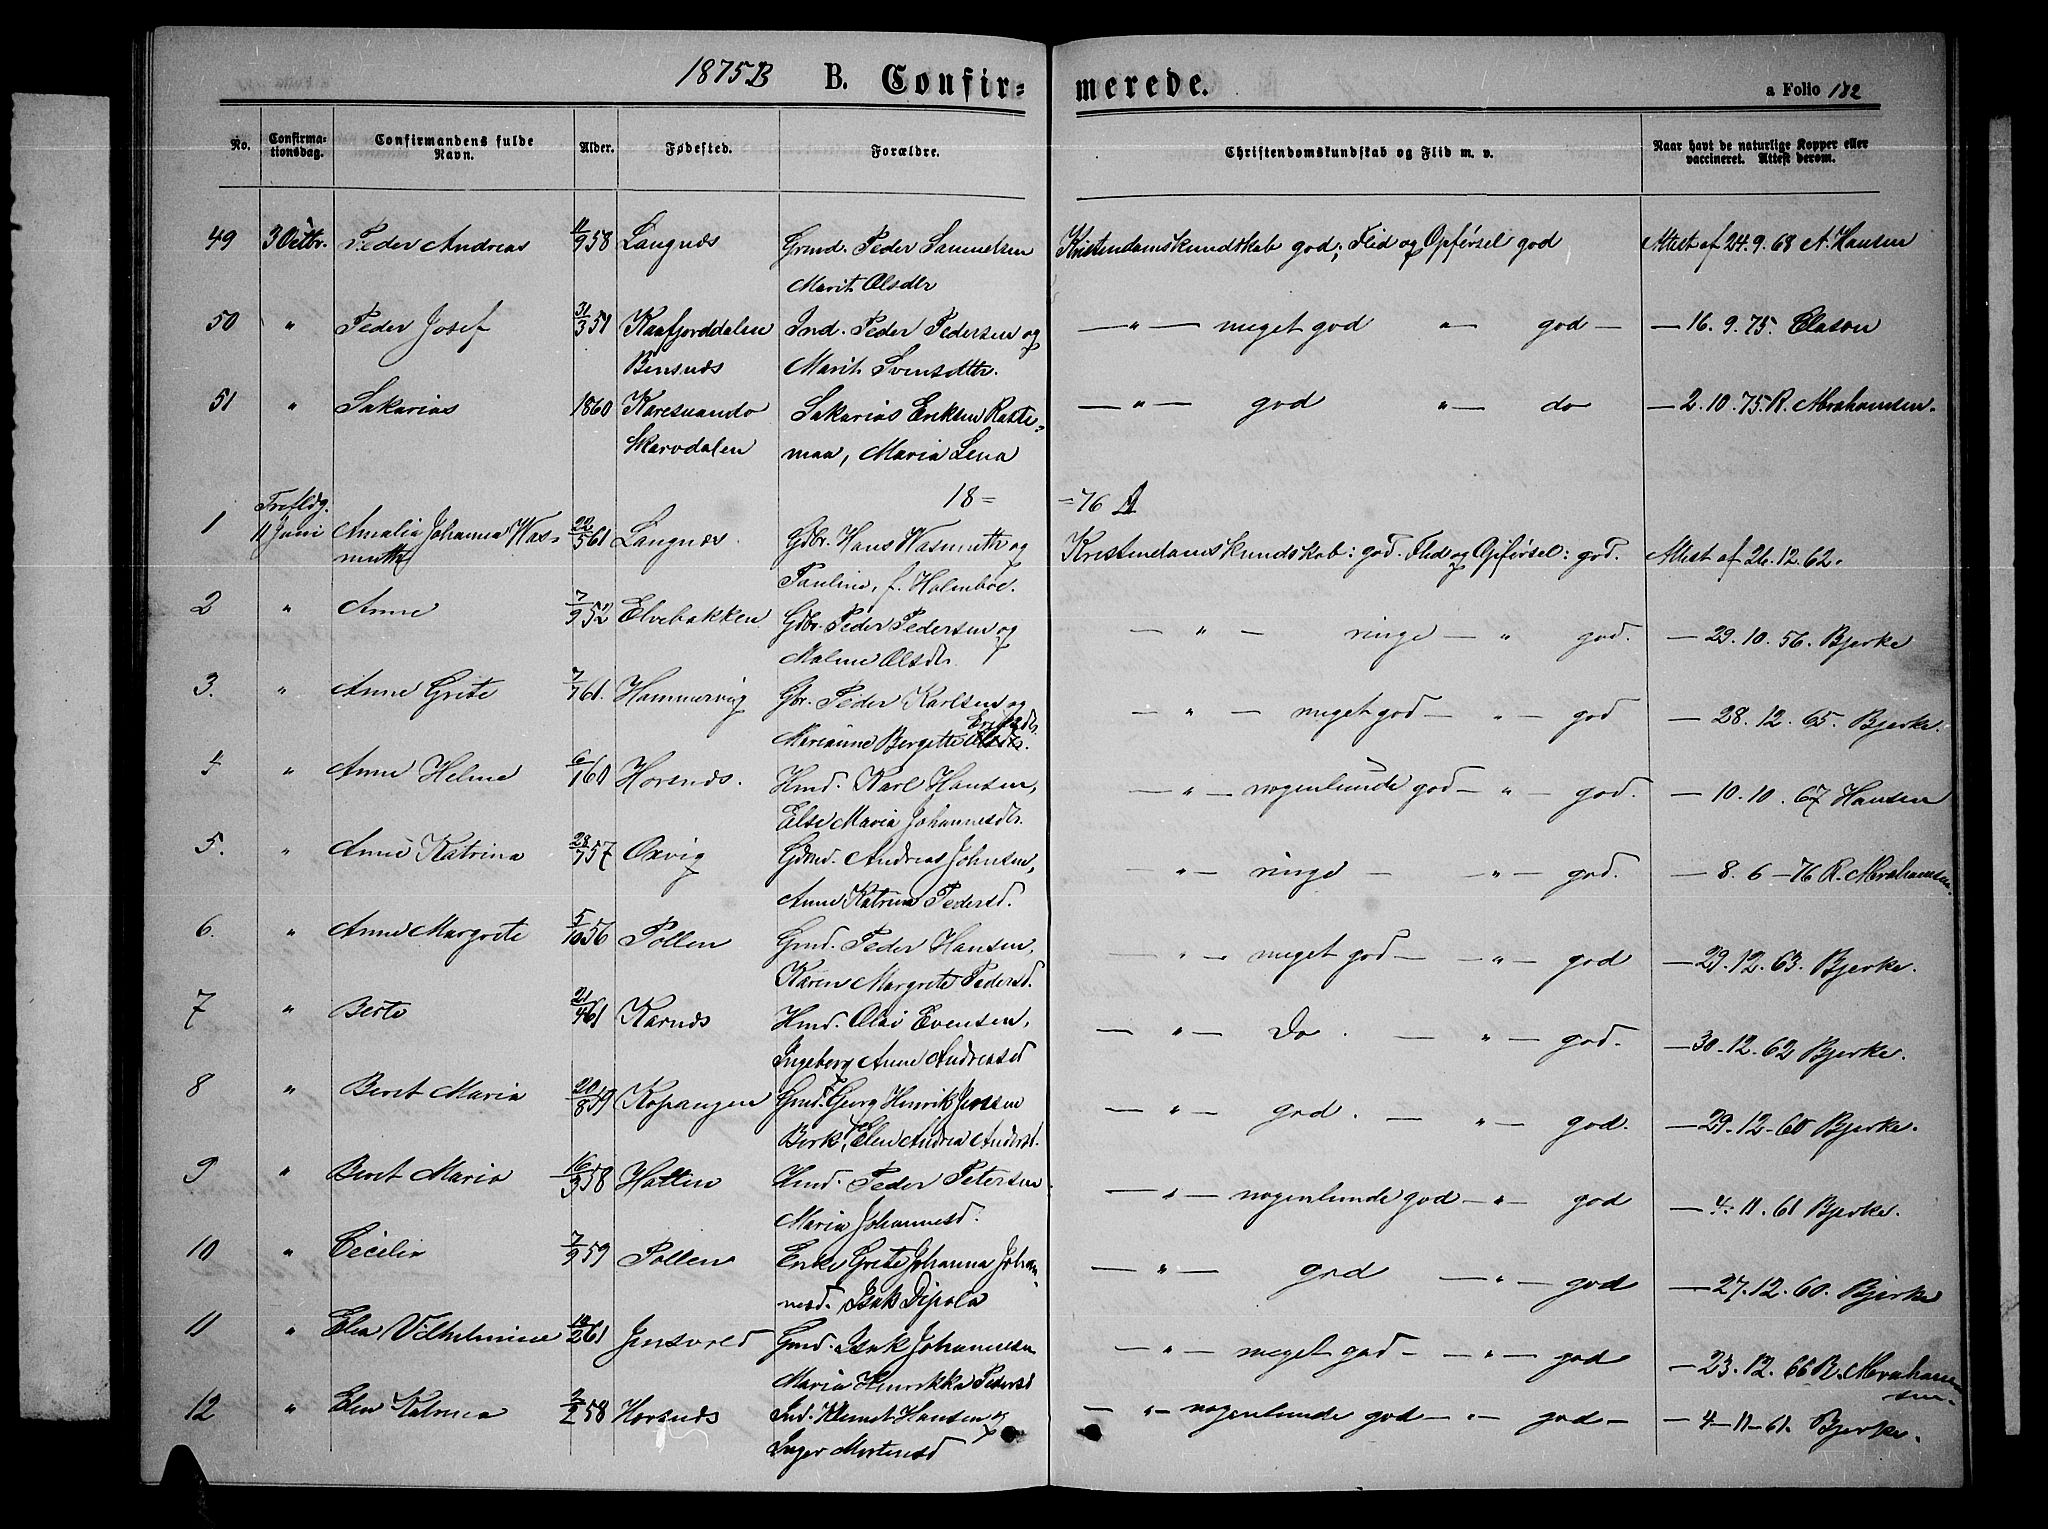 1875 B B. Confir= merede. a Folio 182
No. Confirma=tionsdag. Confirmandens fulde Navn. Alder. Fødested. Forældre. Christendomskundskab og Flid m. v. Naar havt de naturlige Kopper eller vaccineret. Attest derom.
49 3 Octbr. Peder Andreas 11/9 58 Langnæs Grmd. Peder Samuelsen Kristendamskundskab god; Flid og Opførsel god Attest af 24.9.68 A. Hansen
Marit Olsdtr
50 " Peder Josef 31/3 51 Kaafjorddalen Ind. Peder Pedersen og — " — meget god " — god — — 16. 9. 75. Clason
Bensnæs Marit Svensdtter.
51 " Sakarias 1860 Karesuando Sakarias Eriksen Raste= — " — god " — do — 2.10.75. R. Abrahamsen.
Skarvdalen maa, Maria Lena
18= =76 A
1 Trefldg. 11 Juni Amalia Johanna Was= 22/5 61 Langnæs. Gdbr. Hans Wasmuth og Kristendamskundskab: god. Flid og Opførsel: god. Attest af 26.12.62.
muth Pauline, f. Holmboe.
2 " Anne 7/9 52 Elvebakken Gdbr. Peder Pedersen og — " — ringe — " god. — 29.10.56. Bjerke
Malene Olsdtr.
3. " Anne Grete 7/7 61. Hammervig Gbr. Peder Karlsen og — " — meget god — " — god — 28.12.65. Bjerke.
Marianne Bergette Eriksdtr.
4 " Anne Helene 6/1 60 Horsnæs. Hmd. Karl Hansen, — " — nogenlunde god — " — god. — 10.10.67 Hansen
Else Maria Johannesdtr.
5. " Anne Katrina 28/7 57 Oxvig Gdmd. Andreas Johnsen, — " — ringe — " — god. — 8. 6 — 76 R. Abrahamsen.
Anne Katrina Pedersd.
6. " Anne Margrete 5/10 56 Pollen Gmd. Peder Hansen, — " — meget god — — " — god — 29.12.63. Bjerke.
Karen Margrete Pedersd.
7 " Berte 21/4 61 Karnæs Hmd. Olai Evensen, — " — Do. — " — god. — 30.12.62 Bjerke.
Ingeborg Anne Andreasd
8 " Beret Maria 20/8 59 Kopangen Gmd. Georg Henrik Jenssen — " — god. — " — god. — 29.12.60 Bjerke.
Berk, Elen Andrea Andersd.
9 " Beret Maria 16/3 58 Hatten Hmd. Peder Petersen — " — nogenlunde god — " — god — 4.11.61 Bjerke.
Maria Johannesd.
10 " Cecelia 7/9 59 Pollen Enke Grete Johanna Johan= — " — god — " — god — 27.12.60. Bjerke
nesd. Isak Dipola
11 " Elen Vilhelmine 10/2 61 Jensvold Gmd. Isak Johannesen — " — meget god — — " — god — 23.12.66 R. Abraham=
Maria Henrikka Pedersd sen.
12 " Elen Katrina 2/2 58 Horsnæs Ind. Klemet Hansen og — " — nogenlunde god — " — god — — 4—11—61. Bjerke.
Inger Mortensd